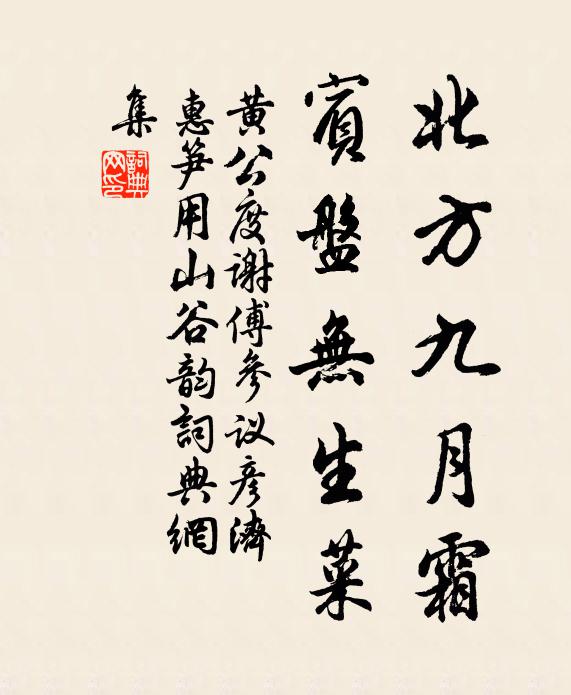 北方九月霜
賓盤無生菜
黄公度謝傅参议彦濟
惠笋用山谷韵詞典網
集
詞典网印